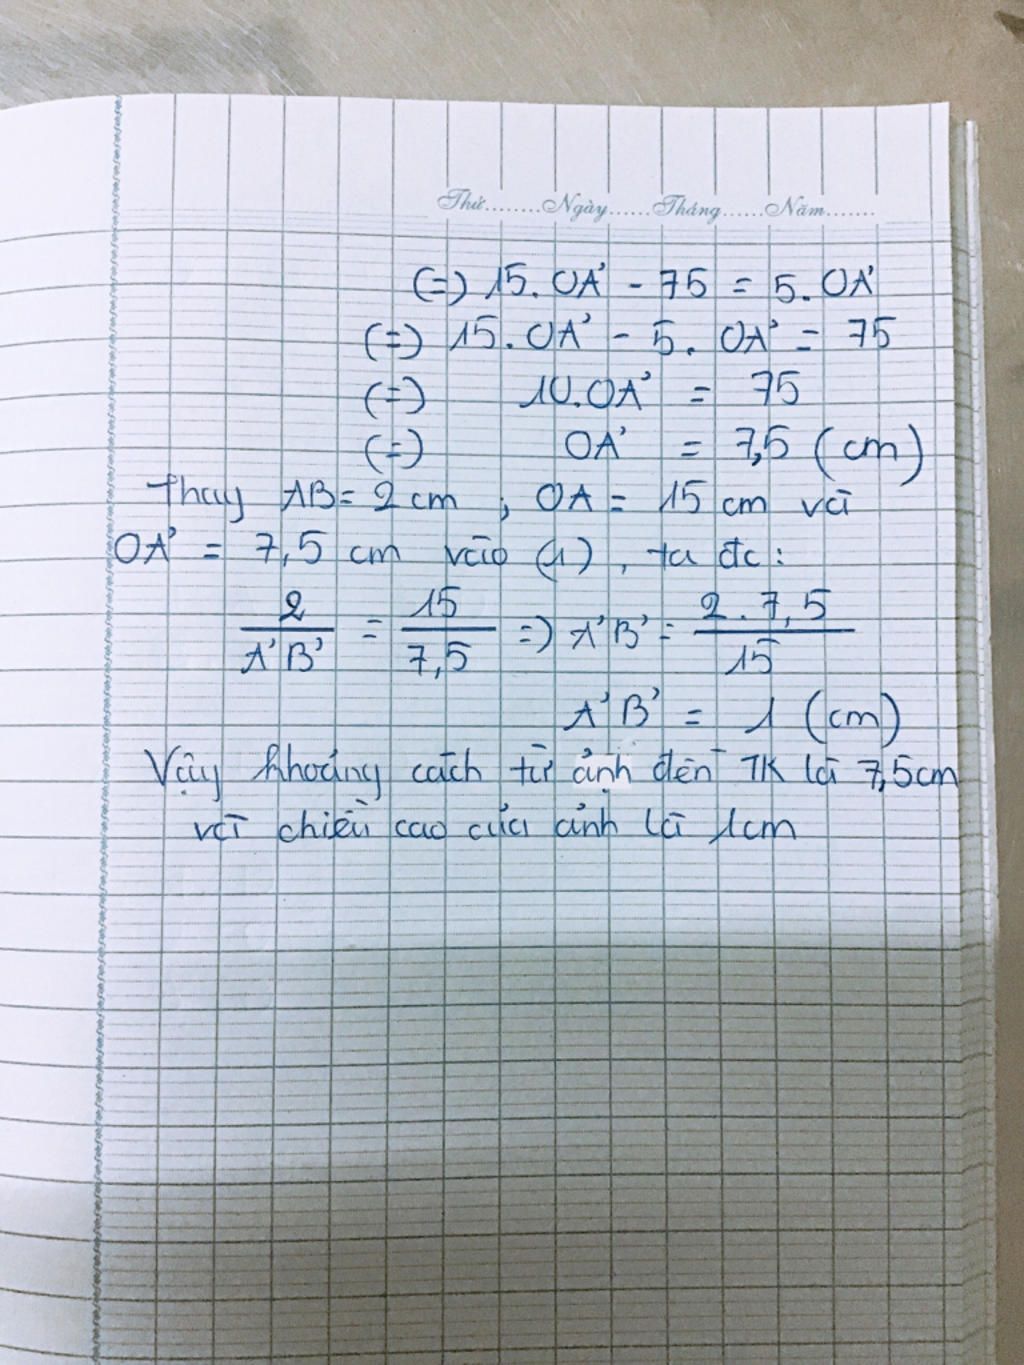 Thứ........Ngày......Tháng......Năm.......
(=) 15. OA' - 75 = 5. OA'
(=) 15. OA' - 5. OA' = 75
(=) 10. OA' = 75
(=) OA' = 7,5 (cm)
Thay AB = 2 cm ; OA = 15 cm và
OA' = 7,5 cm vào (1), ta đc:
2/A'B' = 15/7,5 => A'B' = 2 . 7,5/15
A'B' = 1 (cm)
Vậy khoảng cách từ ảnh đến TK là 7,5cm
và chiều cao của ảnh là 1cm